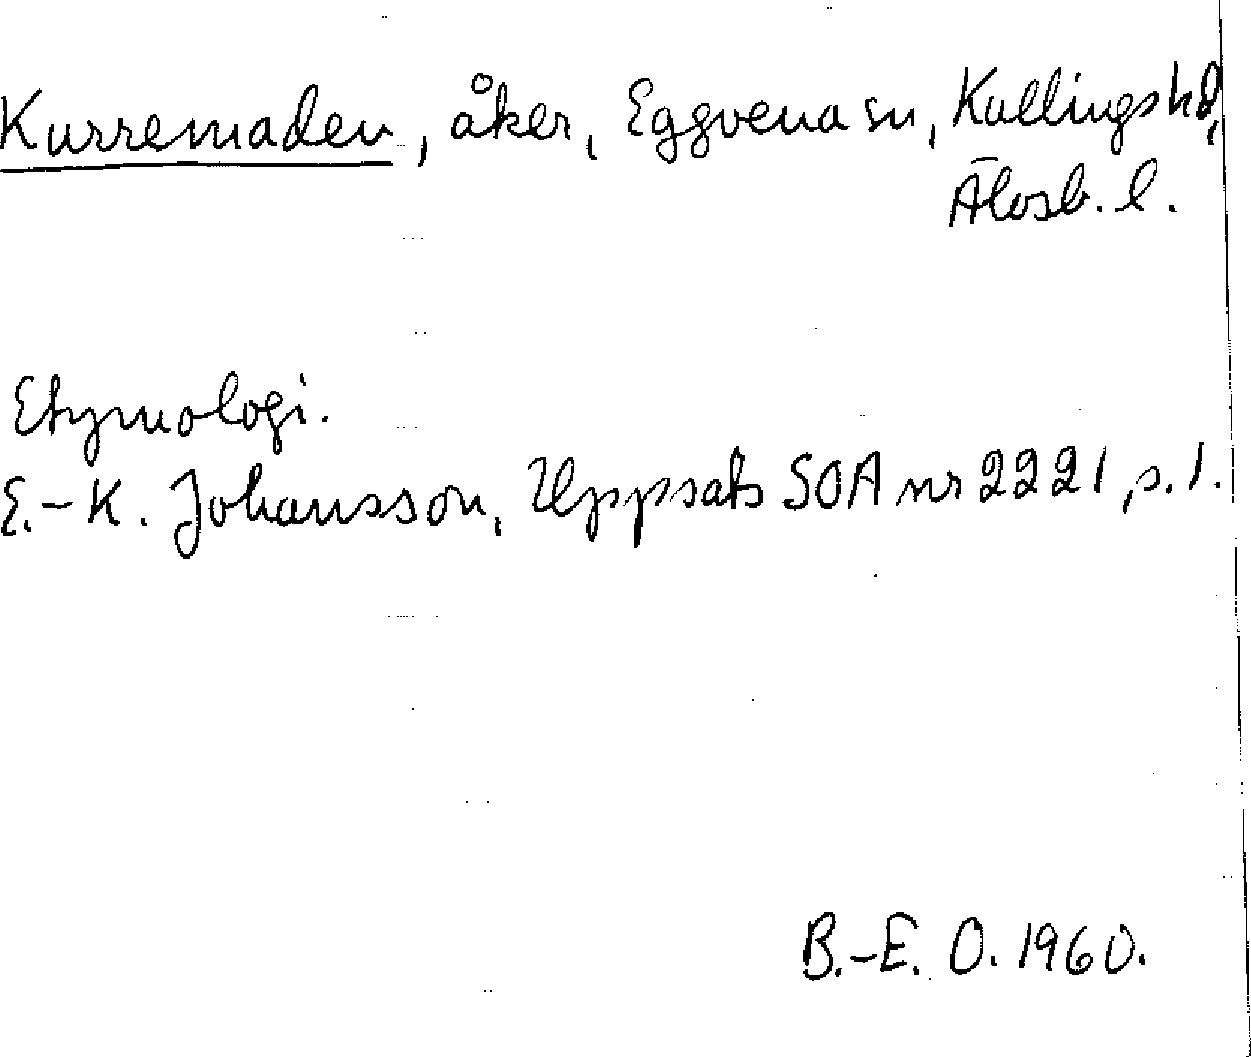 Kurremaden, åker, Eggvena sn, Kullings hd,
Älvsb. l.
Etymologi.
E.-K. Johansson, Uppsats SOA nr 2221, s. 1.
B.-E. O. 1960.